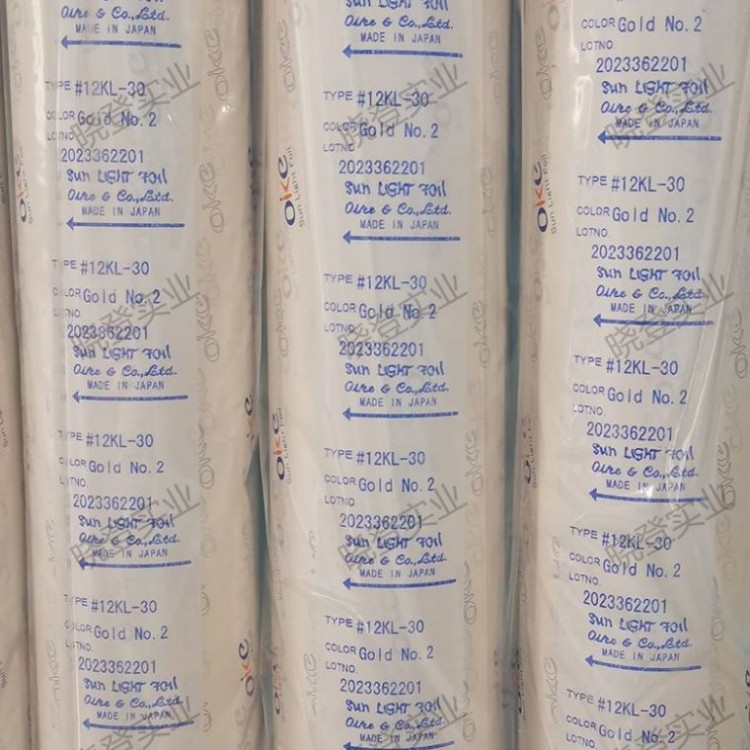 Oike & Co.,Ltd.
MADE IN JAPAN
TYPE #12KL-30
COLOR Gold No.2
LOTNO.
2023362201
Sun LIGHT FOIL
Oike & Co.,Ltd.
MADE IN JAPAN
TYPE #12KL-30
COLOR Gold No.2
LOTNO.
2023362201
Sun LIGHT FOIL
Oike & Co.,Ltd.
MADE IN JAPAN
TYPE #12KL-30
COLOR Gold No.2
LOTNO.
2023362201
Sun LIGHT FOIL
Oike & Co.,Ltd.
MADE IN JAPAN
TYPE #12KL-30
COLOR Gold No.2
LOTNO.
2023362201
Sun LIGHT FOIL
Oike & Co.,Ltd.
MADE IN JAPAN
Sun LIGHT FOIL
Oike & Co.,Ltd.
MADE IN JAPAN
TYPE #12KL-30
COLOR Gold No.2
LOTNO.
2023362201
Sun LIGHT FOIL
Oike & Co.,Ltd.
MADE IN JAPAN
TYPE #12KL-30
COLOR Gold No.2
LOTNO.
2023362201
Sun LIGHT FOIL
Oike & Co.,Ltd.
MADE IN JAPAN
TYPE #12KL-30
COLOR Gold No.2
LOTNO.
2023362201
Sun LIGHT FOIL
Oike & Co.,Ltd.
MADE IN JAPAN
TYPE #12KL-30
COLOR Gold No.2
LOTNO.
2023362201
Sun LIGHT FOIL
Oike & Co.,Ltd.
MADE IN JAPAN
COLOR Gold No.2
LOTNO.
2023362201
Sun LIGHT FOIL
Oike & Co.,Ltd.
MADE IN JAPAN
TYPE #12KL-30
COLOR Gold No.2
LOTNO.
2023362201
Sun LIGHT FOIL
Oike & Co.,Ltd.
MADE IN JAPAN
TYPE #12KL-30
COLOR Gold No.2
LOTNO.
2023362201
Sun LIGHT FOIL
Oike & Co.,Ltd.
MADE IN JAPAN
TYPE #12KL-30
COLOR Gold No.2
LOTNO.
2023362201
Sun LIGHT FOIL
Oike & Co.,Ltd.
MADE IN JAPAN
TYPE #12KL-30
COLOR Gold No.2
OIKE
Sun Light Foil
OIKE
Sun Light Foil
OIKE
Sun Light Foil
晓登实业
晓登实业
晓登实业
晓登实业
晓登实业
晓登实业
晓登实业
晓登实业
晓登实业